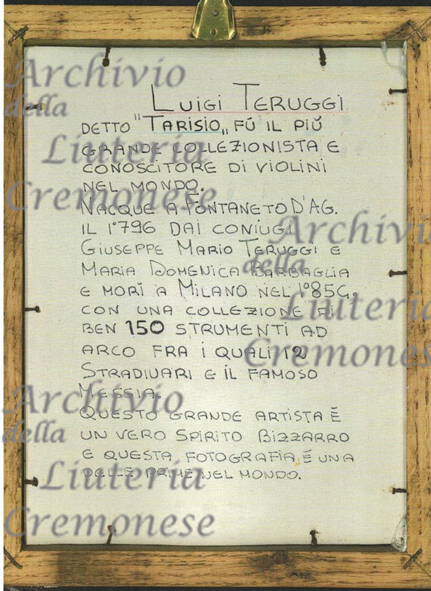 Luigi Teruggi
detto "Tarisio" fú il più
grande collezionista e
conoscitore di violini
nel mondo.
Nacque a Fontaneto d'Ag.
il 1796 dai coniugi
Giuseppe Mario Teruggi e
Maria Domenica Barbaglia
e morí a Milano nel
con una collezione di
ben 150 strumenti ad
arco fra i quali 12
Stradivari e il famoso
Messia.
Questo grande artista é
un vero spirito bizzarro
e questa fotografia é una
delle prime nel mondo.
Archivio
della
Liuteria
Cremonese
Archivio
della
Liuteria
Cremonese
Archivio
della
Liuteria
Cremonese